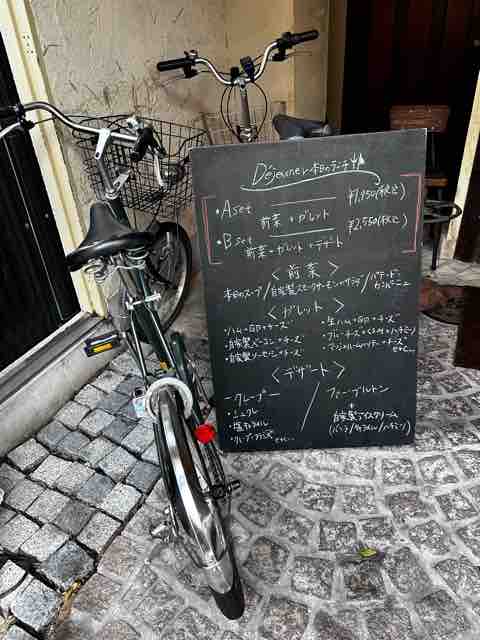 Déjeuner 本日のランチ
・A set ¥1,950(税込)
前菜+ガレット
・B set ¥2,550(税込)
前菜+ガレット+デザート
<前菜>
本日のスープ/自家製スモークサーモンのサラダ/パテ・ド・カンパーニュ
<ガレット>
・ハム・卵・チーズ ・生ハム・卵・チーズ
・自家製ベーコン・チーズ ・ブルーチーズ・くるみ・ハチミツ
・自家製ソーセージ・チーズ
<デザート>
クレープ ファーブルトン
・シュクレ +
・塩キャラメル 自家製アイスクリーム
(バニラ/キャラメル/ハチミツ)